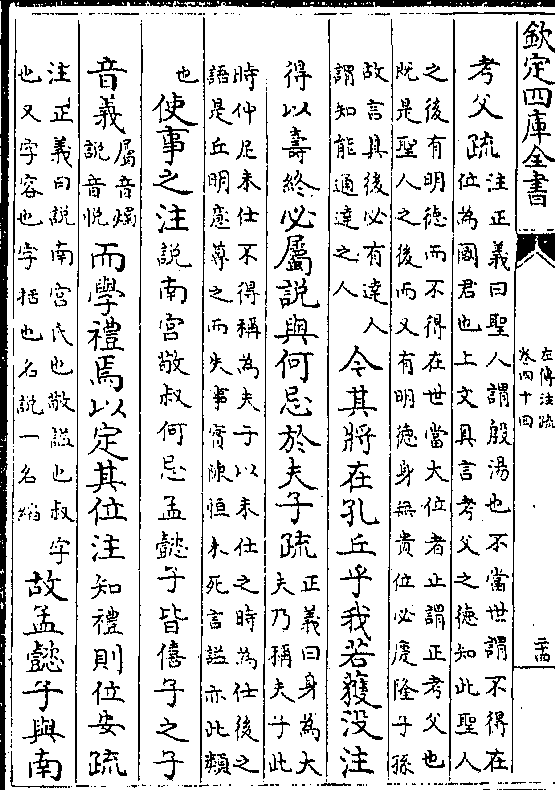 欽定四庫全書
左傳注疏
卷四十四
二十四
考父疏
注正義曰聖人謂殷湯也不當世謂不得在
位為國君也上文具言考父之德知此聖人
之後有明德而不得在世當大位者止謂正考父也
既是聖人之後而又有明德身無貴位必慶隆子孫
故言其後必有達人
謂知能通達之人
今其將在孔丘乎我若獲没注
得以壽終必屬說與何忌於夫子疏
正義曰身為大
夫乃稱夫子此
時仲尼未仕不得稱為夫子以未仕之時為仕後之
語是丘明意尊之而失事實陳恒未死言謚亦此類
也
使事之注說南宫敬叔何忌孟懿子皆僖子之子
音義
屬音燭
說音悅
而學禮焉以定其位注知禮則位安疏
注正義曰說南宫氏也敬謚也叔字
也又字容也字括也名說一名縚
故孟懿子與南